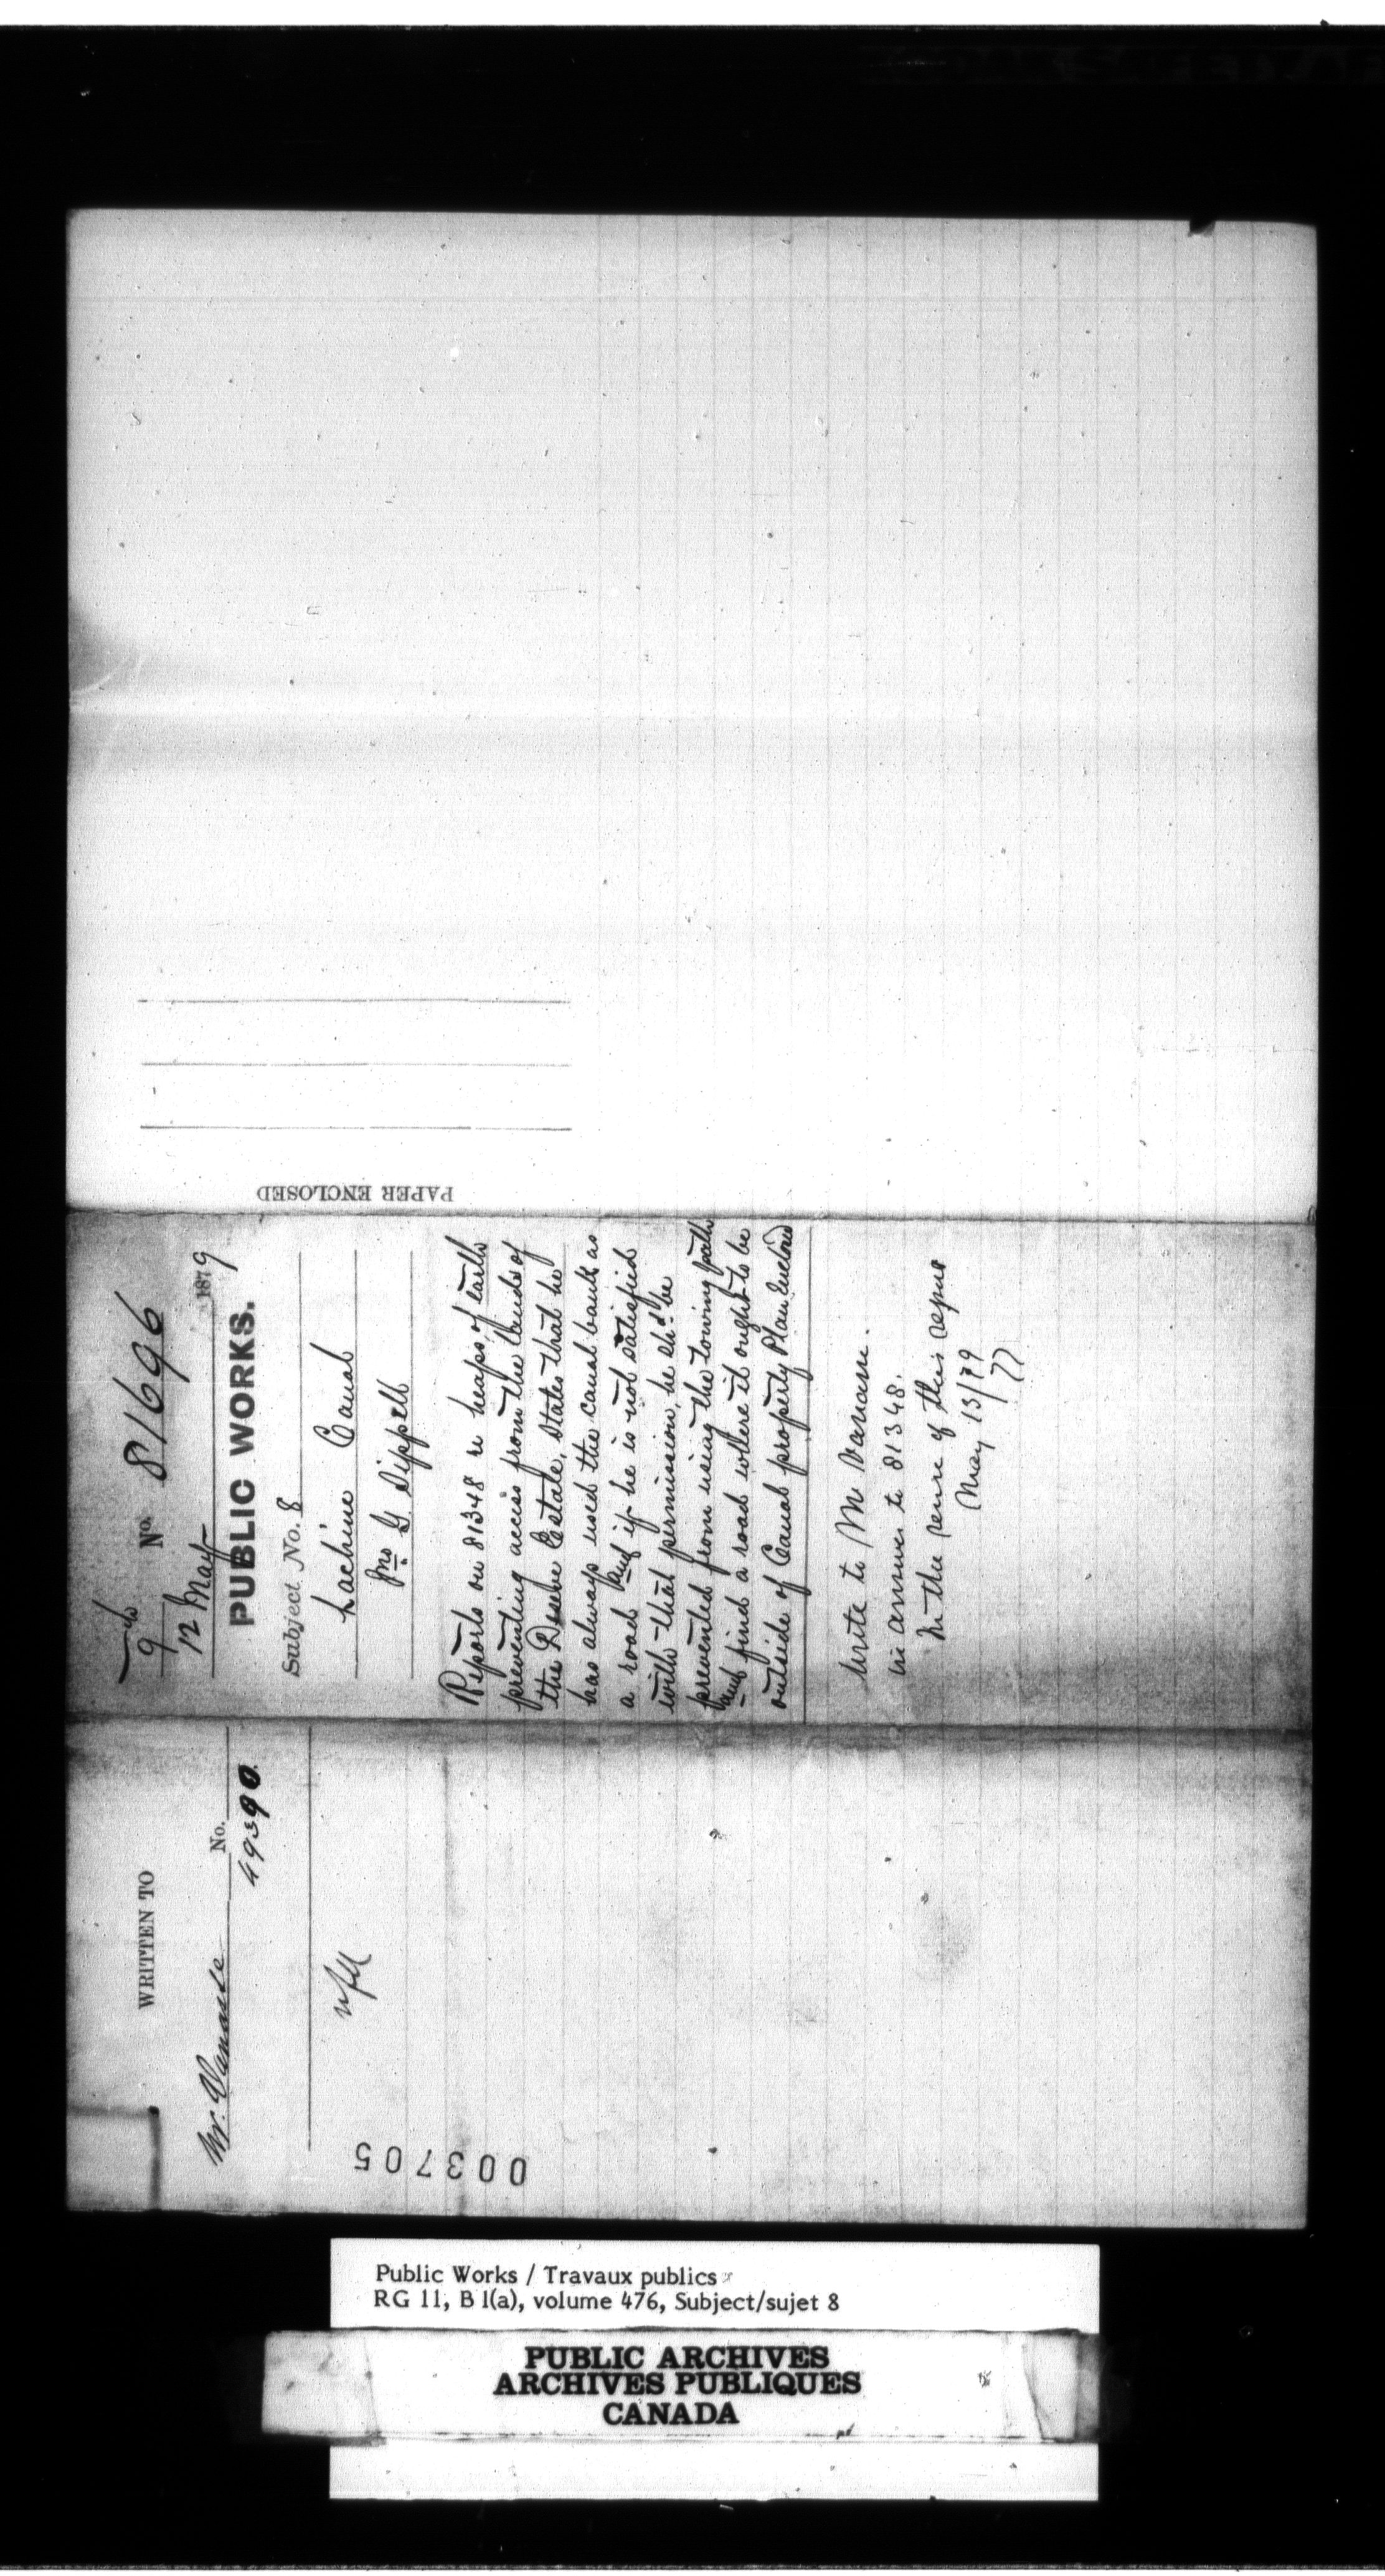 9 No. 81696
12 May 1879
PUBLIC WORKS.
Subject No. 8
Lachine Canal
Jno G Sippell
Reports on 81348 re heaps of earth
preventing access from the lands of
the Deseve Estate, states that he
has always used the canal bank as
a road and if he is not satisfied
with that permission, he shd be
prevented from using the towing path
and find a road where it ought to be
outside of Canal property Plan Enclosed
Write to M Vanasse.
in answer to 81348.
In the sense of this report
May 13/79
PAPER ENCLOSED
WRITTEN TO
Mr. Vanasse No. 49390.
003705
Public Works / Travaux publics
RG 11, B 1(a), volume 476, Subject/sujet 8
PUBLIC ARCHIVES
ARCHIVES PUBLIQUES
CANADA